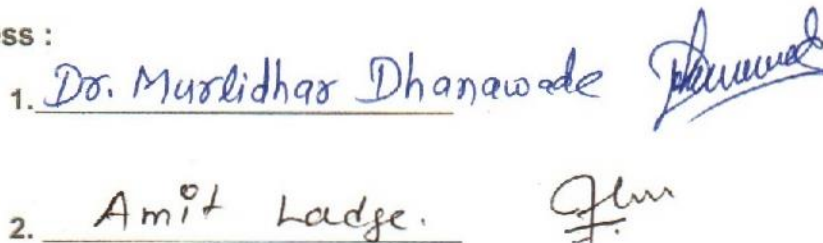 ess :
1. Dr. Murlidhar Dhanawade
2. Amit Ladge.